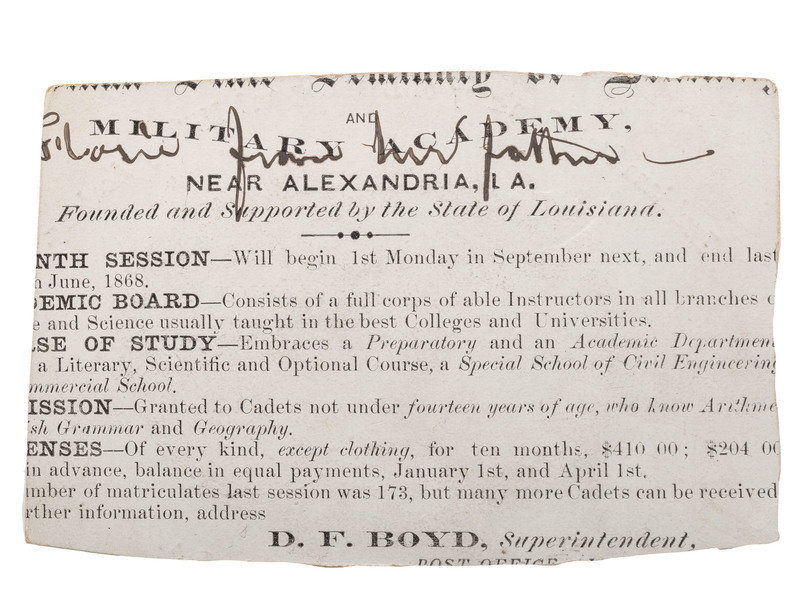 AND
MILITARY ACADEMY,
from her father
NEAR ALEXANDRIA, LA.
Founded and Supported by the State of Louisiana.
NTH SESSION—Will begin 1st Monday in September next, and end last
n June, 1868.
DEMIC BOARD—Consists of a full corps of able Instructors in all branches o
e and Science usually taught in the best Colleges and Universities.
SE OF STUDY—Embraces a Preparatory and an Academic Department
a Literary, Scientific and Optional Course, a Special School of Civil Engineering
mmercial School.
ISSION—Granted to Cadets not under fourteen years of age, who know Arithme
ish Grammar and Geography.
ENSES—Of every kind, except clothing, for ten months, $410 00; $204 00
in advance, balance in equal payments, January 1st, and April 1st.
umber of matriculates last session was 173, but many more Cadets can be received
rther information, address
D. F. BOYD, Superintendent,
POST OFFICE